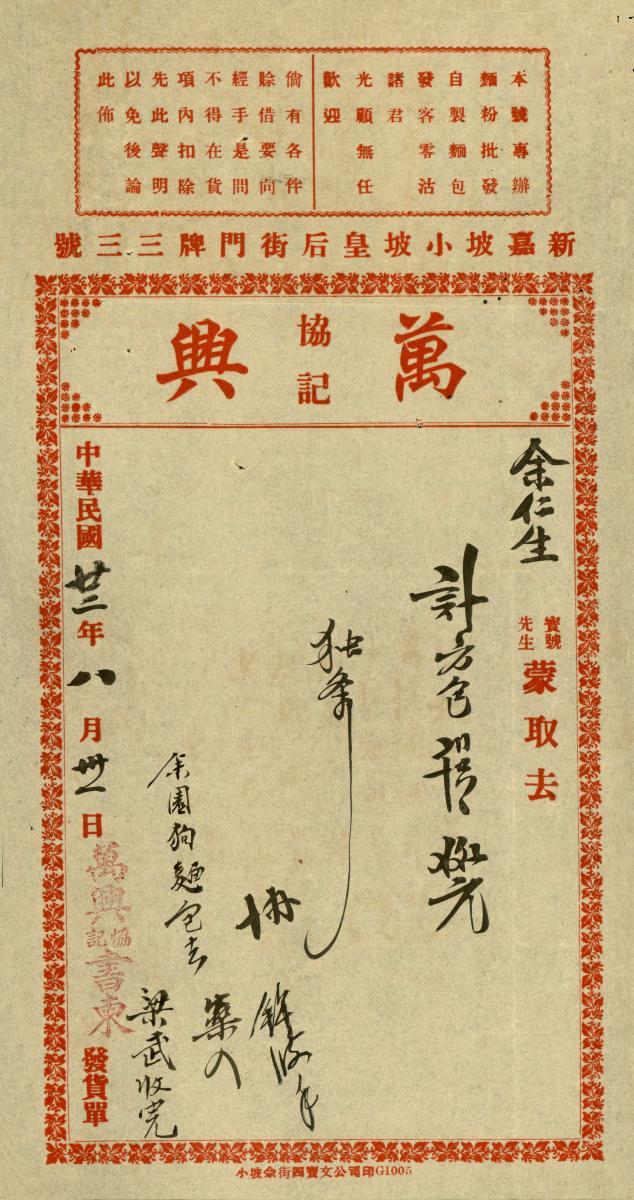 本號專辦
麵粉批發
自製麵包
發客零沽
諸君
光顧無任
歡迎
倘有各伴
賒借要向
經手是問
不得在貨
項內扣除
先此聲明
以免後論
此佈
新嘉坡小坡皇后街門牌三三號
萬興
協記
余仁生
寶號
先生
蒙取去
計方包
独条
余園狗麵包去
梁武收完
中華民國廿三年八月卅一日
萬興協記書柬
發貨單
小坡余街四寶文公司印G1005